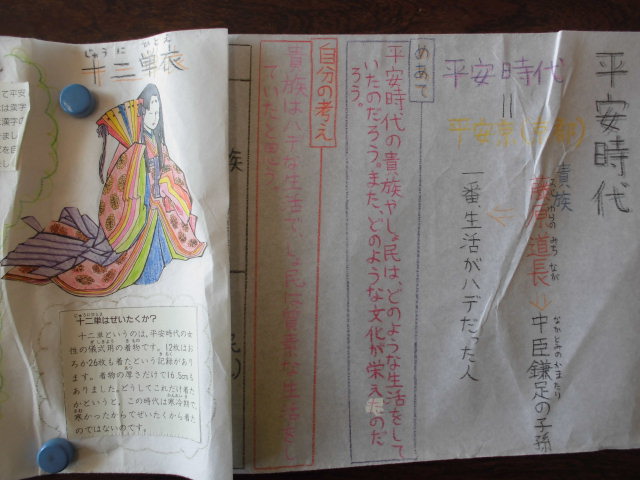 平安時代
貴族
藤原道長
ふじわらの みち なが
⇨中臣鎌足の子孫
なかとみのかまたり
平安時代
=
平安京(京都)
⇦
一番、生活がハデだった人
めあて
平安時代の貴族やしょ民は、どのような生活をして
いたのだろう。また、どのような文化が栄えたのだ
ろう。
自分の考え
貴族はハデな生活で、しょ民は質素な生活をし
ていたと思う。
族
民
じゅうに ひとえ
十二単衣
じゅうにひとえ
十二単はぜいたくか?
十二単というのは、平安時代の女
性の儀式用の着物です。12枚はお
ろか26枚も着たという記録があり
ます。着物の厚さだけで16.5cmも
ありました。どうしてこれだけ着た
かというと、この時代は寒冷期で
寒かったからでぜいたくから着た
のではないのです。
て平安
は漢字
漢字の